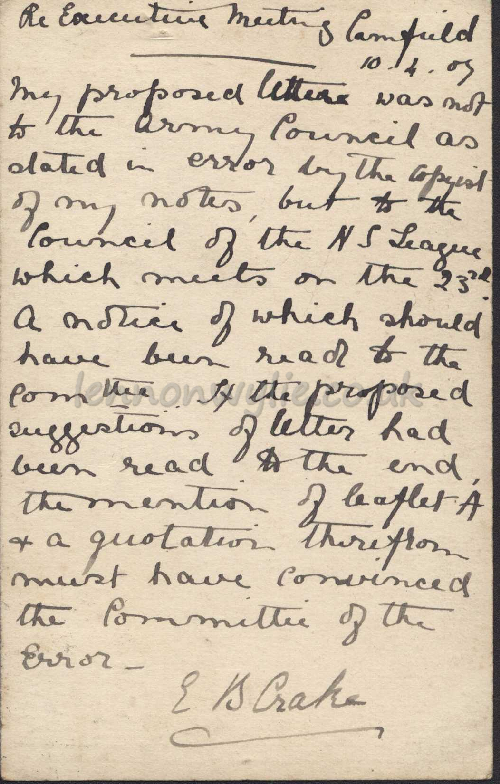 Re Executive Meeting Camfield
10.4.09
My proposed letter was not
to the Army Council as
stated in error by the copyist
of my notes, but to the
Council of the N S League
which meets on the 23rd.
A notice of which should
have been read to the
comttee. If the proposed
suggestions of letter had
been read to the end,
the mention of leaflet A
& a quotation therefrom
must have convinced
the Committee of the
Error -
E B Crake
lennonwylie.co.uk